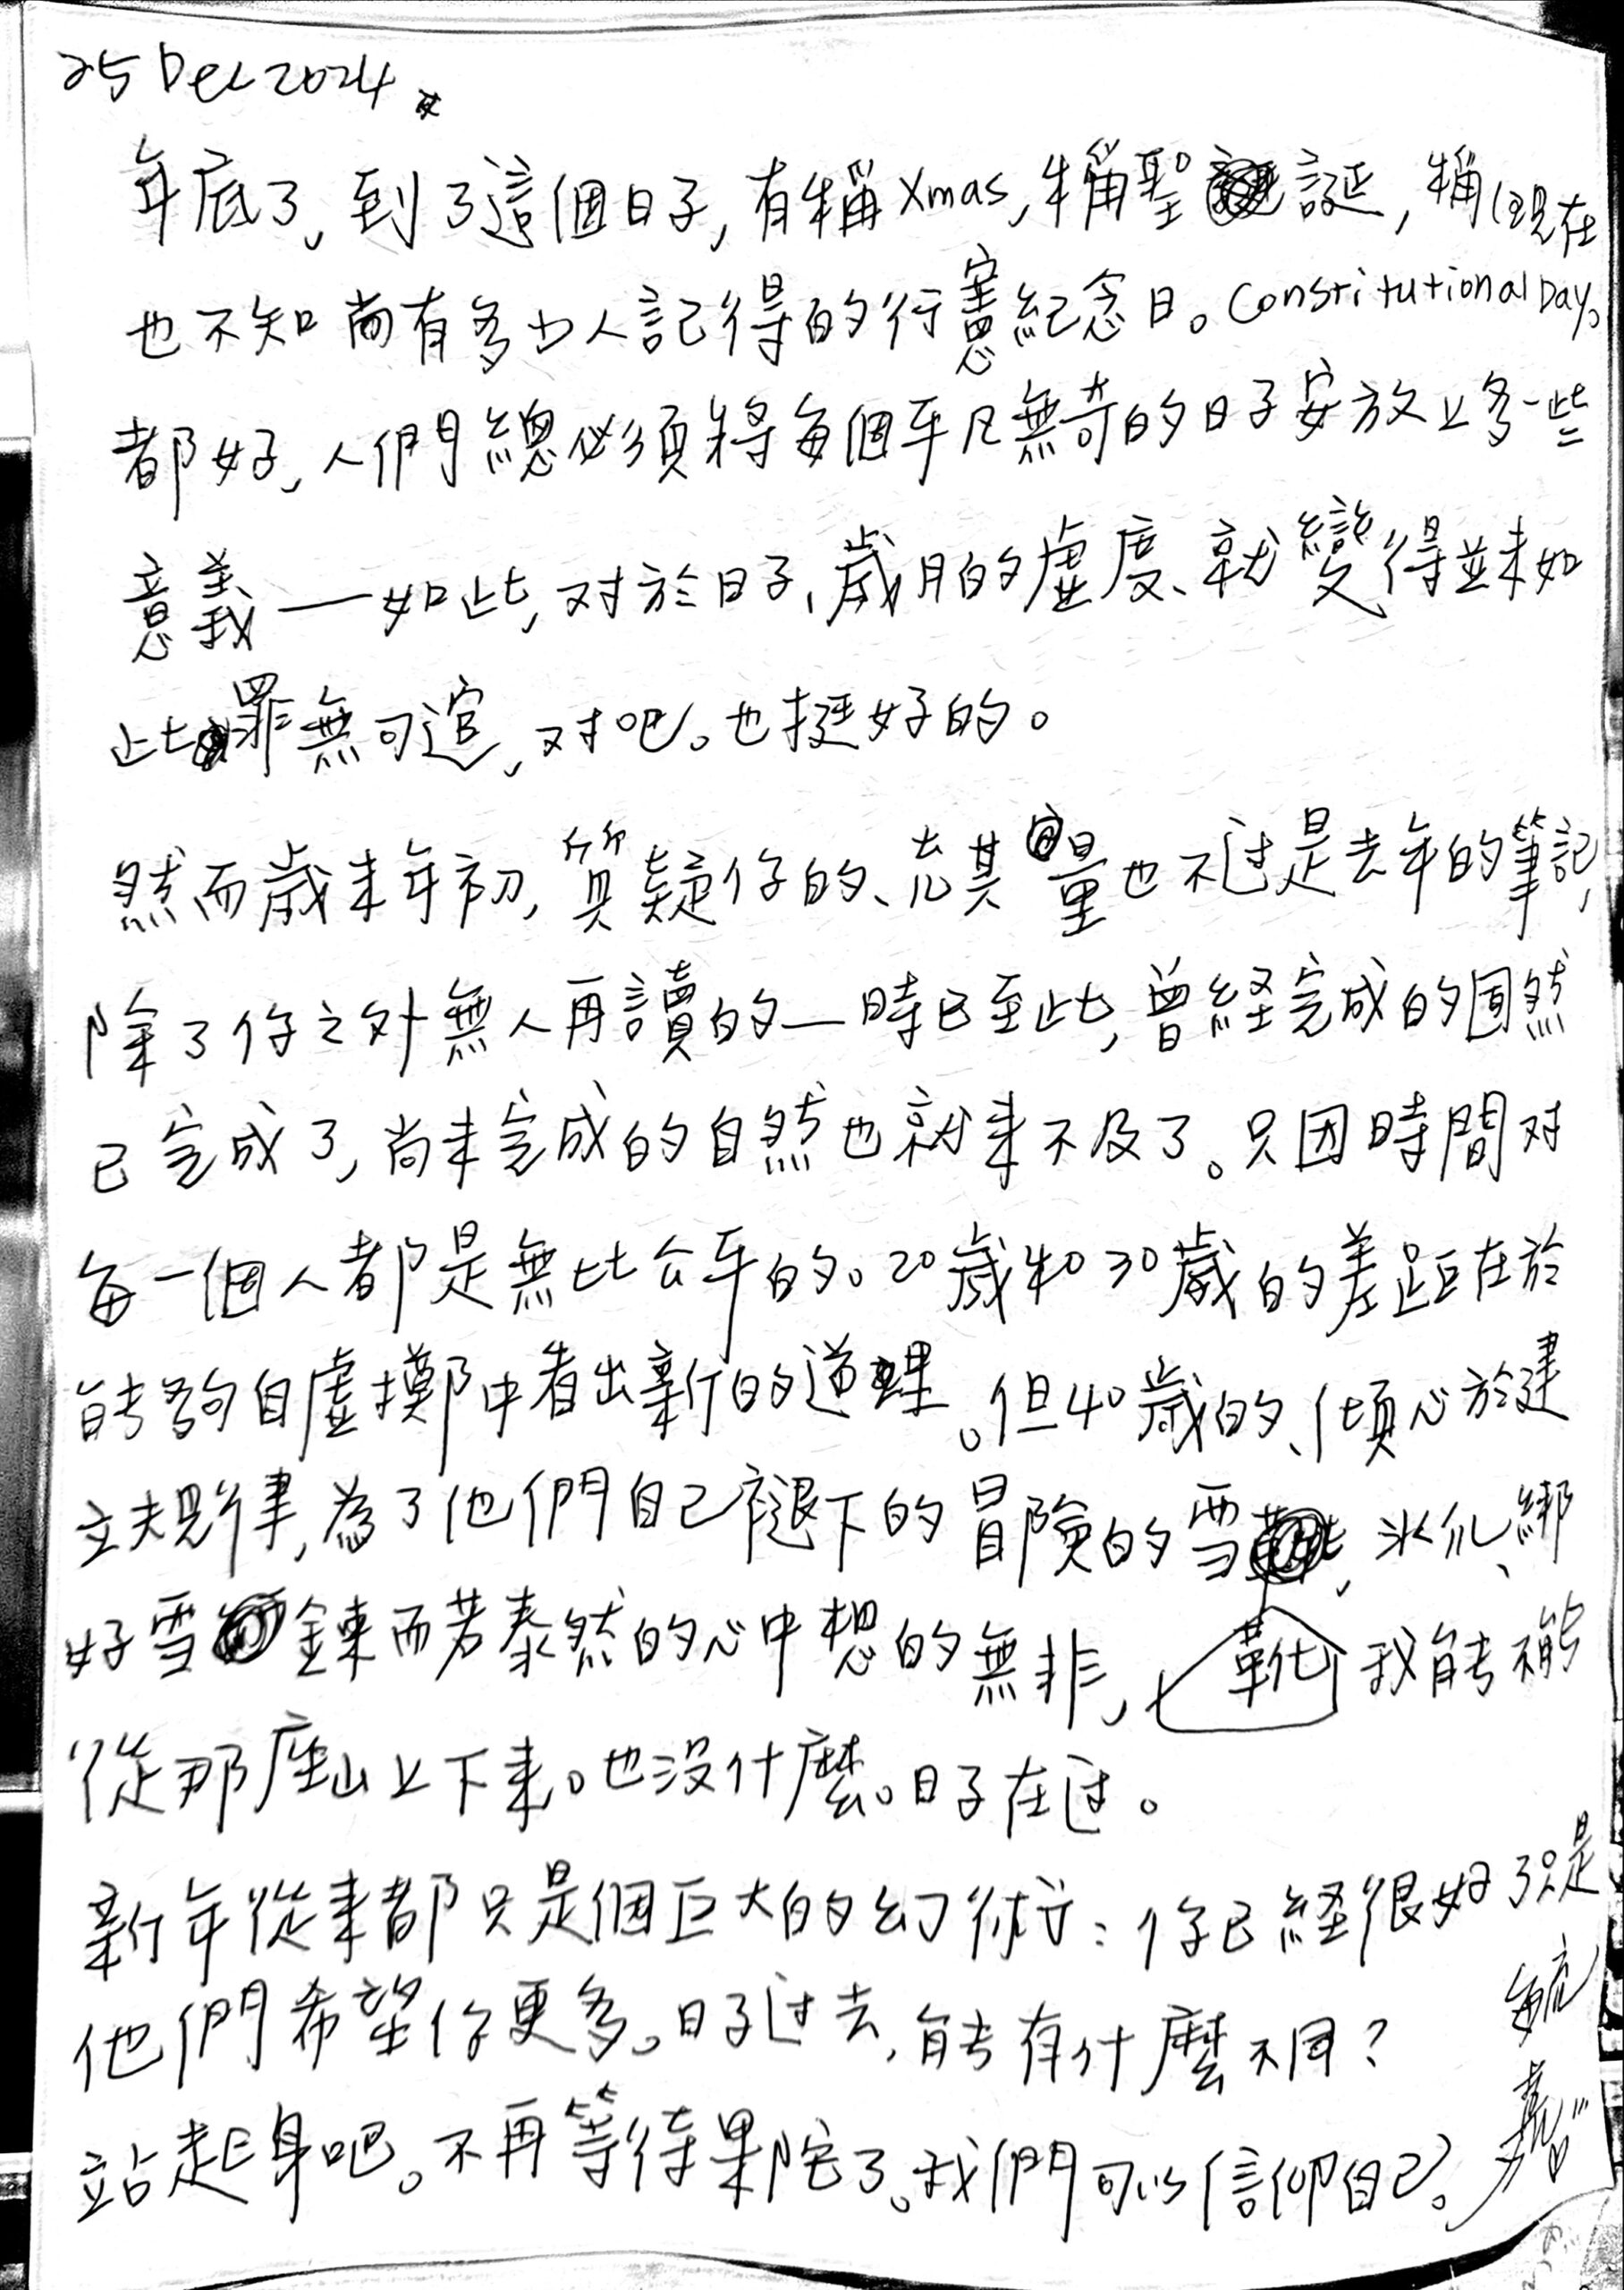 25 Dec 2024
年底了,到了這個日子,有稱Xmas,稱聖誕,稱(現在
也不知尚有多少人記得的行憲紀念日。Constitutional Day。
都好,人們總必須將每個平凡無奇的日子安放上多一些
意義——如此,对於日子、歲月的虛度、就變得並未如
此罪無可逭,对吧。也挺好的。
然而歲末年初,質疑你的、充其量也不过是去年的筆記,
除了你之外無人再讀的—時已至此,曾経完成的固然
已完成了,尚未完成的自然也就来不及了。只因時間对
每一個人都是無比公平的。20歲和30歲的差距在於
能夠自虛擲中看出新的道理。但40歲的、傾心於建
立規律,為了他們自己褪下的冒險的雪靴,冰爪、綁
好雪鍊而若泰然的心中想的無非,我能不能
從那座山上下来。也沒什麼。日子在过。
新年從来都只是個巨大的幻術:你已経很好了只是
他們希望你更多。日子过去,能有什麼不同?
站起身吧。不再等待果陀了。我們可以信仰自己。